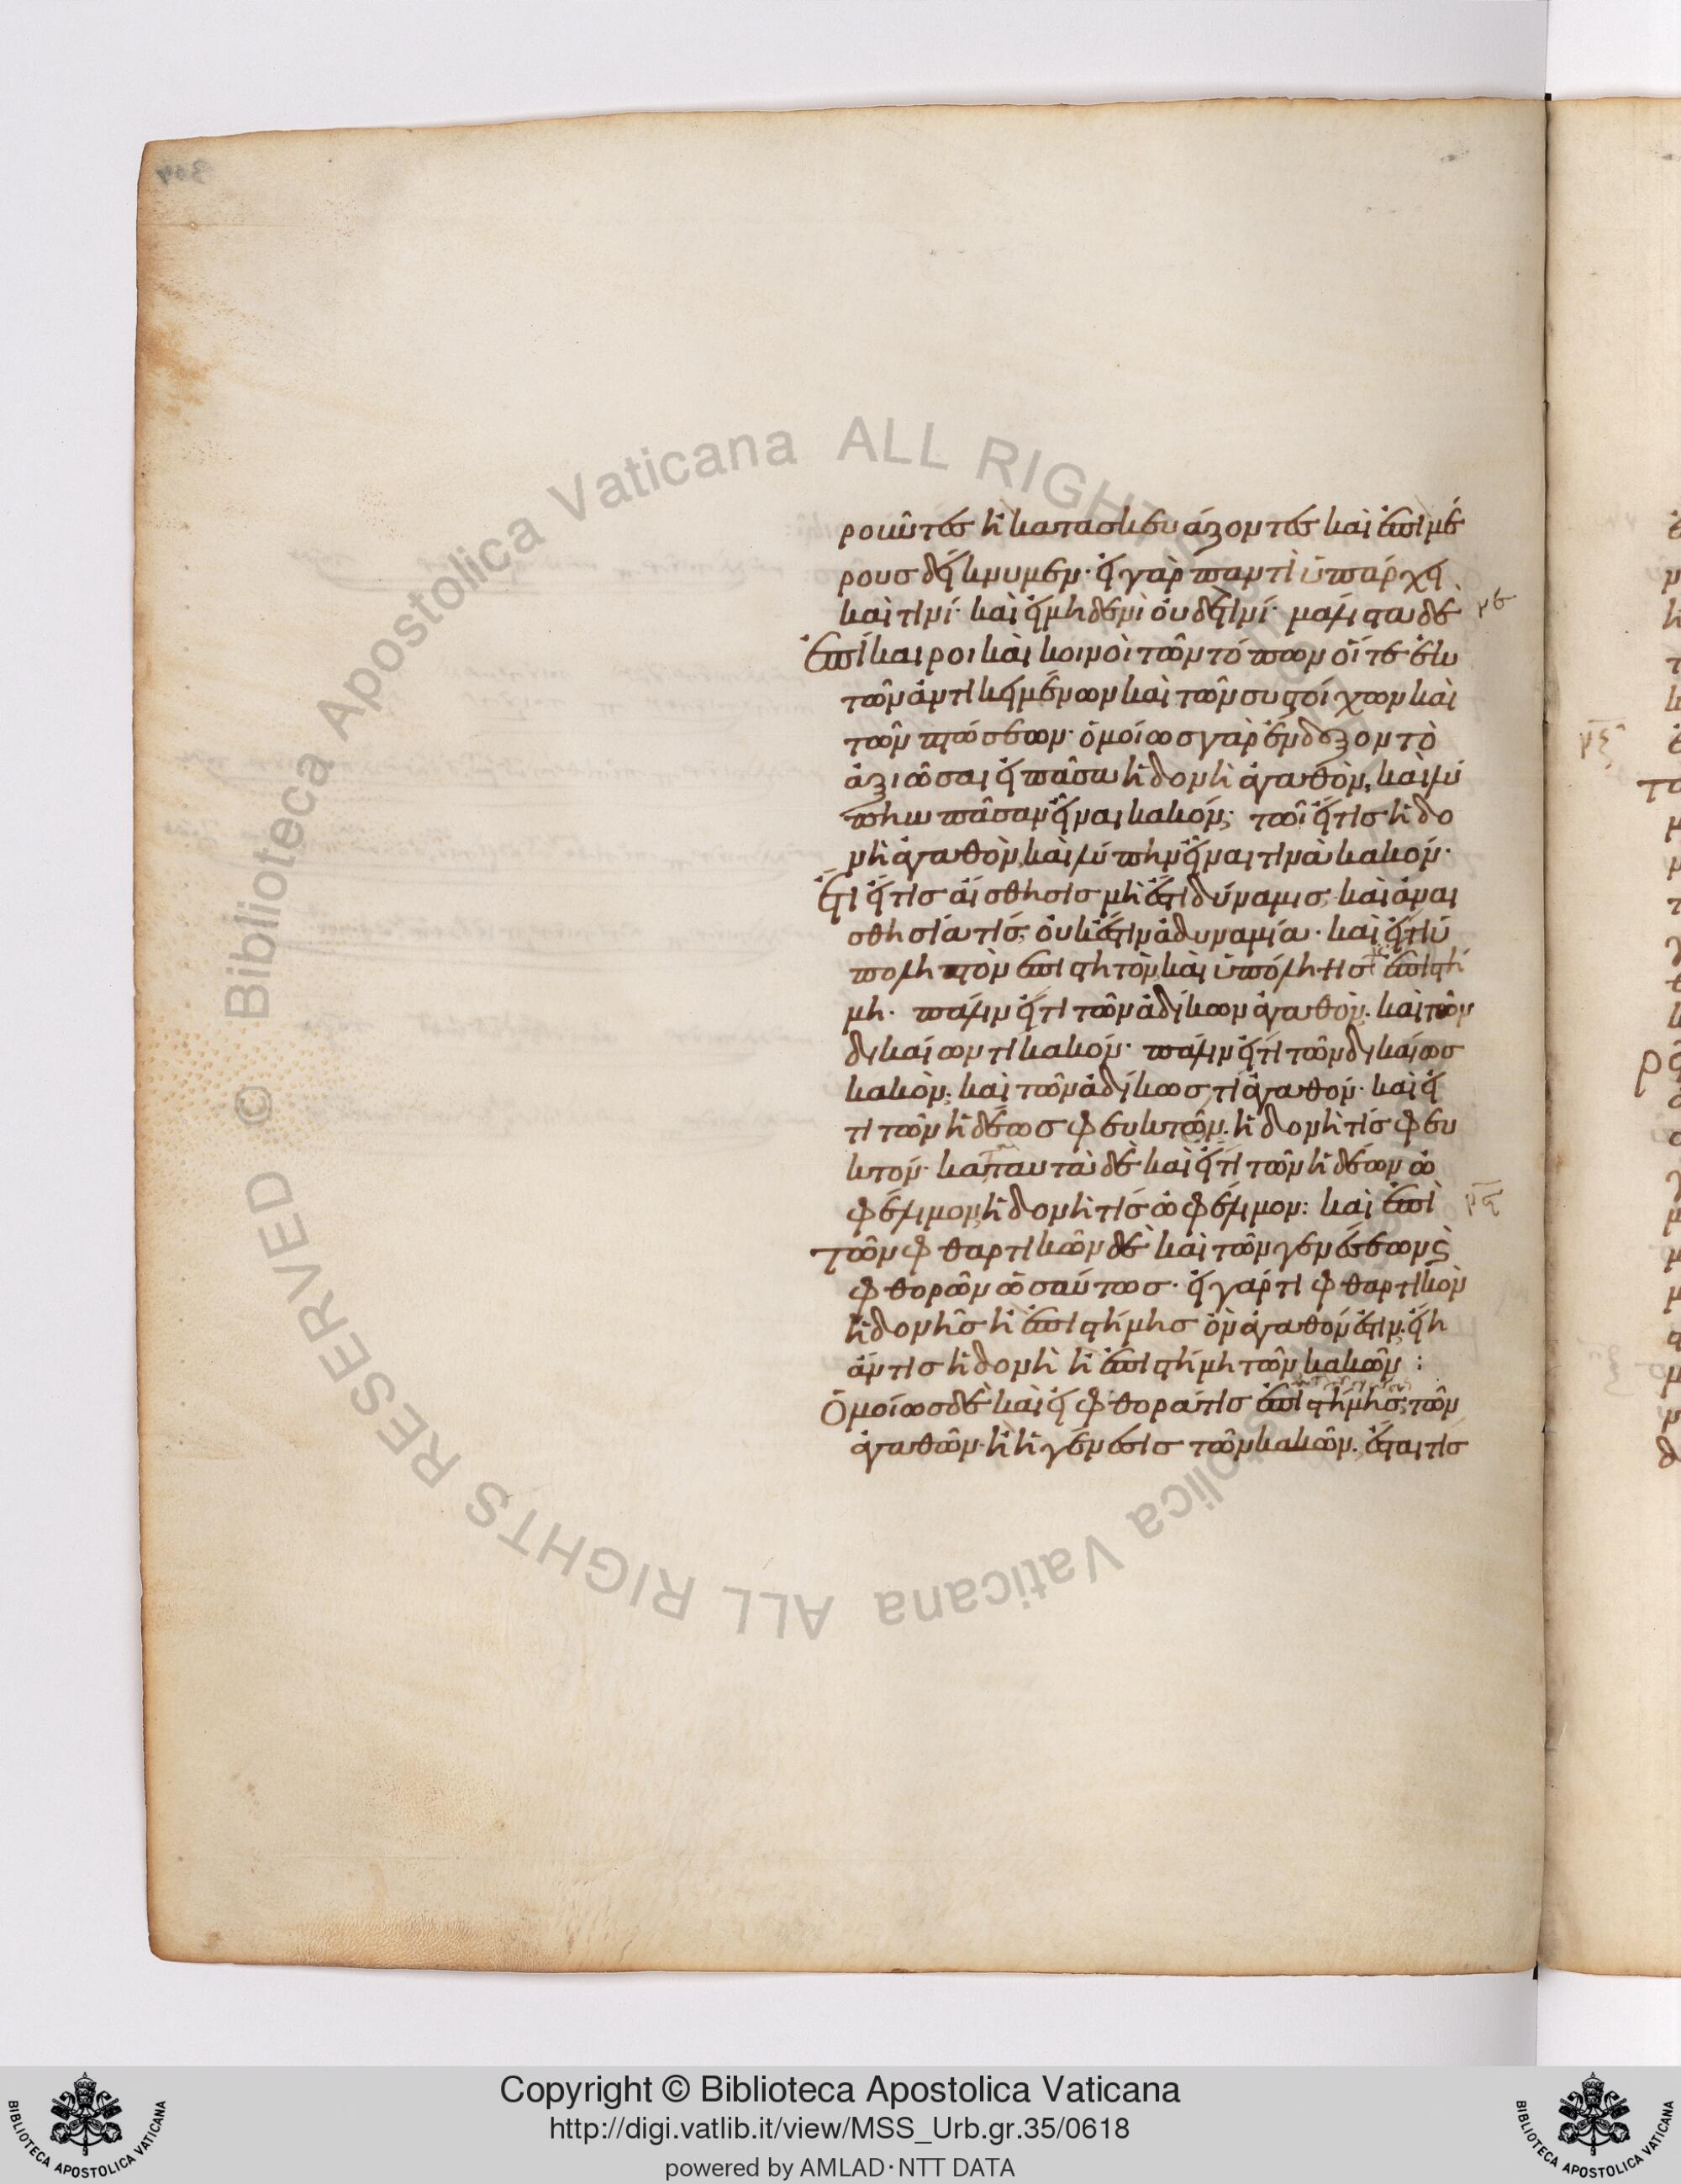 ροῦντες ἢ κατασκευάζοντες καὶ ἐπὶ μέ
ρους δείκνυμεν· εἰ γὰρ παντὶ ὑπάρχει
καὶ τινί· καὶ εἰ μηδενὶ οὐδέ τινί· μάλιστα δὲ
ἐπίκαιροι καὶ κοινοὶ τῶν τόπων οἵ τε ἐκ
τῶν ἀντικειμένων καὶ τῶν συστοίχων καὶ
τῶν πτώσεων· ὁμοίως γὰρ ἔνδοξον τὸ
ἀξιῶσαι εἰ πᾶσα ἡδονὴ ἀγαθὸν, καὶ λύ
πην πᾶσαν εἶναι κακόν, τῶι εἴ τις ἡδο
νὴ ἀγαθὸν, καὶ λύπην εἶναι τινὰ κακόν·
ἔτι εἴ τις αἴσθησις μή ἐστι δύναμις, καὶ ἀναι
σθησία τίς, οὐκ ἔστιν ἀδυναμία· καὶ εἴ τι ὑ
ποληπτὸν ἐπιστητὸν, καὶ ὑπόληψίς τις ἐπιστή
μη· πάλιν εἴ τι τῶν ἀδίκων ἀγαθὸν, καὶ τῶν
δικαίων τι κακόν· πάλιν εἴ τι τῶν δικαίως
κακὸν, καὶ τῶν ἀδίκως τι ἀγαθόν· καὶ εἴ
τι τῶν ἡδέως φευκτῶν, ἡδονή τίς φευ
κτόν· κατὰ ταυτὰ δὲ καὶ εἴ τι τῶν ἡδέων ὠ
φέλιμον, ἡδονή τίς ὠφέλιμον: καὶ ἐπὶ
τῶν φθαρτικῶν δὲ καὶ τῶν γενέσεων ϛ
φθορῶν ὡσαύτως· εἰ γάρ τι φθαρτικὸν
ἡδονῆς ἢ ἐπιστήμης ὂν ἀγαθόν ἐστιν, εἴη
ἄν τις ἡδονὴ ἢ ἐπιστήμη τῶν κακῶν:
Ὁμοίως δὲ καὶ εἰ φθορά τις ἐπιστήμης, τῶν
ἀγαθῶν· ἢ ἡ γένεσις τῶν κακῶν, ἔσται τίς
Copyright © Biblioteca Apostolica Vaticana
http://digi.vatlib.it/view/MSS_Urb.gr.35/0618
powered by AMLAD·NTT DATA
BIBLIOTECA APOSTOLICA VATICANA
BIBLIOTECA APOSTOLICA VATICANA
© Biblioteca Apostolica Vaticana ALL RIGHTS RESERVED